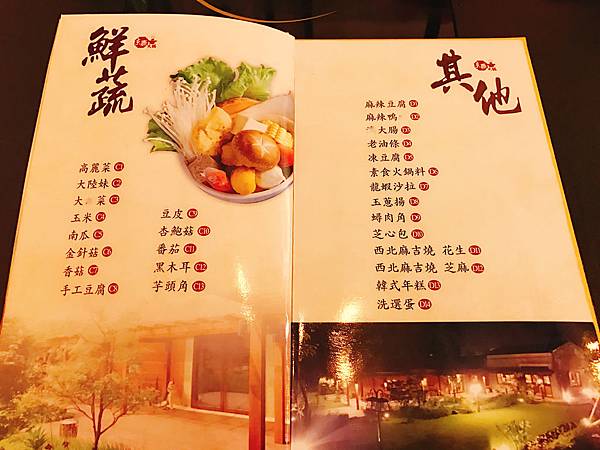 鮮蔬
高麗菜 C1
大陸妹 C2
大 菜 C3
玉米 C4
南瓜 C5
金針菇 C6
香菇 C7
手工豆腐 C8
豆皮 C9
杏鮑菇 C10
番茄 C11
黑木耳 C12
芋頭角 C13
其他
麻辣豆腐 D1
麻辣鴨 D2
大腸 D3
老油條 D4
凍豆腐 D5
素食火鍋料 D6
龍蝦沙拉 D7
玉蔥揚 D8
蟳肉角 D9
芝心包 D10
西北麻吉燒 花生 D11
西北麻吉燒 芝麻 D12
韓式年糕 D13
洗選蛋 D14